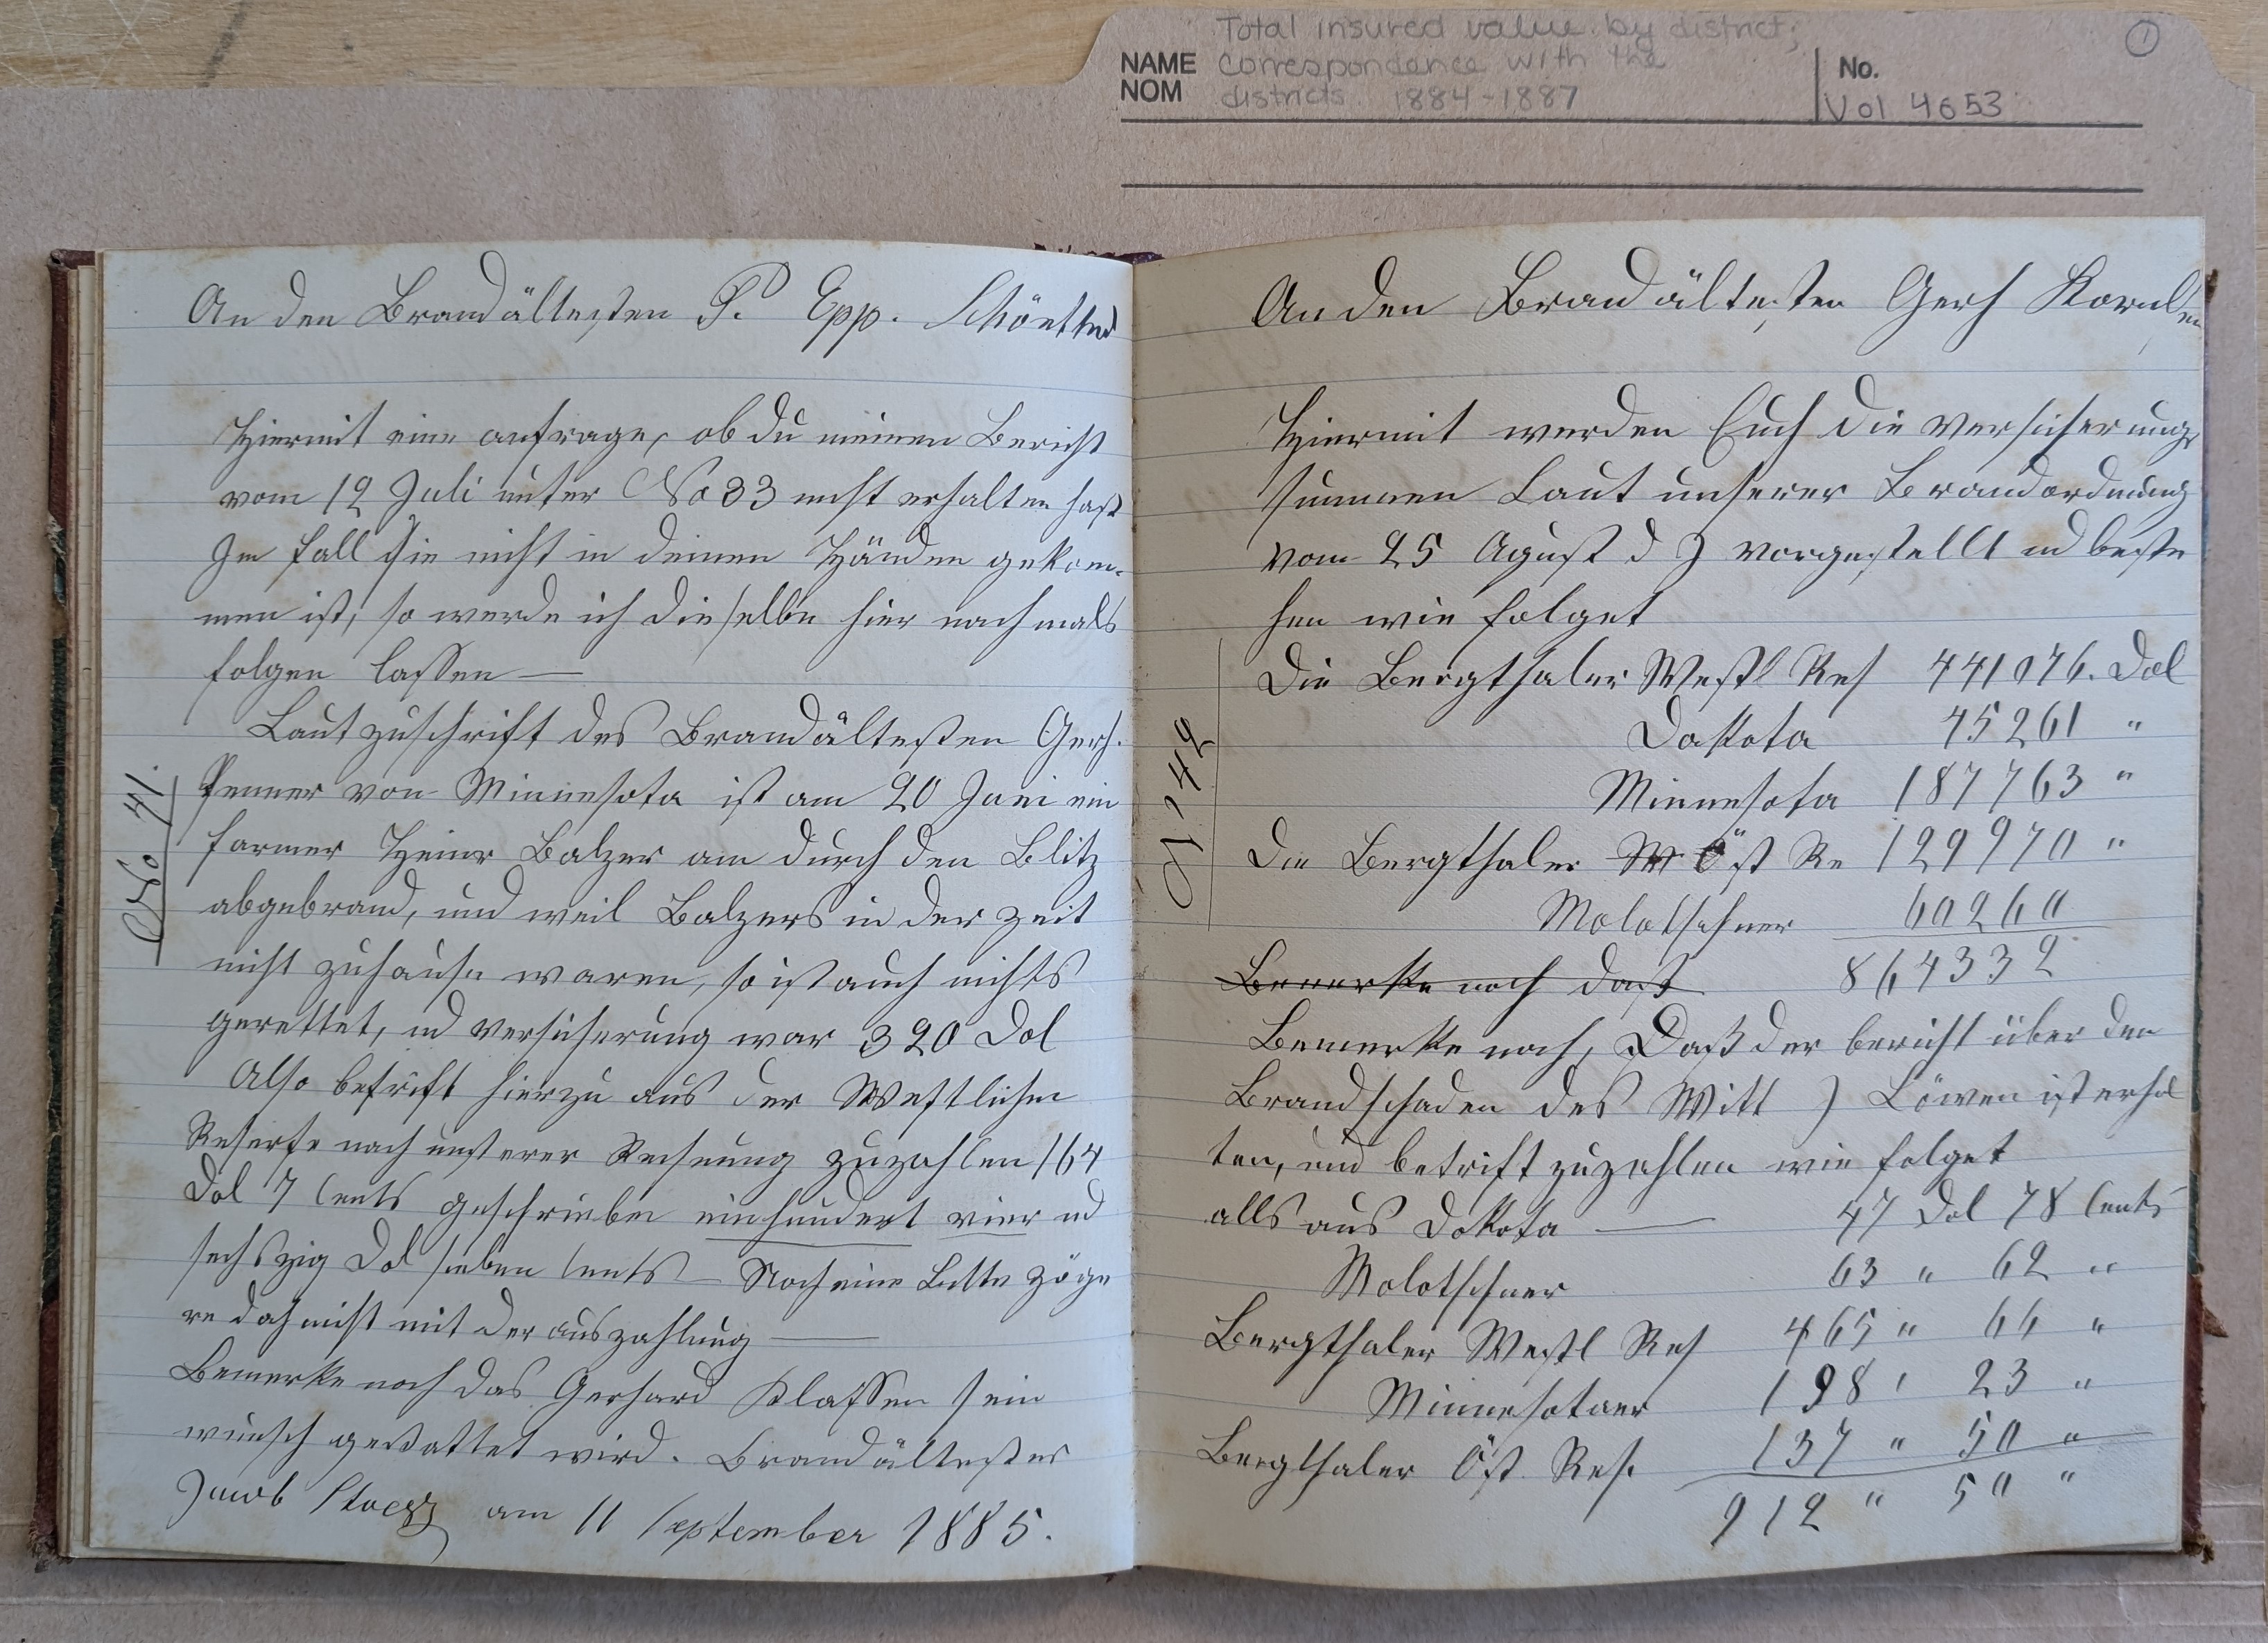 Total insured value by district;
NAME correspondence with the No.
NOM districts. 1884-1887 Vol 4653
1
An den Brandältesten P. Epp.
Hiermit eine anfrage, ob du meinen Bericht
vom 12 Juli unter No 33 nicht erhalten hast
Im fall Sie nicht in deinen Händen gekom-
men ist, so werde ich dieselbe hier nachmals
folgen lassen —
Laut zuschrift des Brandältesten Gerh.
Penner von Minnesota ist am 20 Juni ein
farmer Heinr Balzer am durch den Blitz
abgebrand, und weil Balzers in der zeit
nicht zuhause waren, so ist auch nichts
gerettet, ud versicherung war 320 Dol
Also betrift hierzu aus der Westlichen
Reserfe nach unserer Rechnung zuzahlen 164
Dol 7 Cents geschrieben einhundert vier ud
sechszig Dol sieben Cents — Noch eine Bitte zöge
re doch nicht mit der auszahlung —
Bemerke noch das Gerhard Klassen sein
wunsch gestattet wird. Brandältester
Jacob Stoesz am 11 September 1885.
No 41.
An den Brandältesten Gerh
Hiermit werden Euch die versicherungs
summen Laut unserer Brandordnung
vom 25 Agust d J vorgestellt ud beste
hen wie folget
Die Bergthaler Westl Res 441076. Dol
Dakota 45261 "
Minnesota 187763 "
Die Bergthaler W Öst Re 129970 "
Molotschner 60260
Bemerke noch daß 864332
Bemerke noch, Daß der bericht über den
Brandschaden des Witt J Löwen ist erhal
ten, und betrift zuzahlen wie folget
alls aus Dakota — 47 Dol 78 Cents
Molotschner 63 " 62 "
Bergthaler Westl Res 465 " 66 "
Minnesotaer 198 " 23 "
Bergthaler Öst Res. 137 " 50 "
912 " 50 "
42